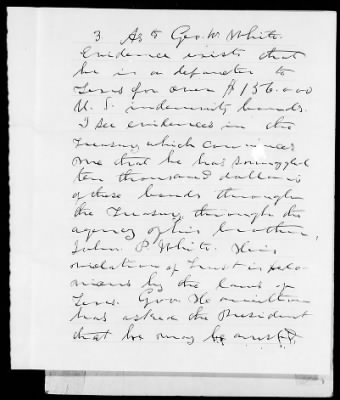 3 As to Geo. W. White.
Evidence exists that
he is a defaulter to
Texas for over $156.000
U. S. indemnity bonds.
I see evidences in the
Treasury which convinces
me that he has smuggled
ten thousand dollars
of these bonds through
the Treasury, through the
agency of his brother,
John P White. His
violation of trust is felo-
nious by the laws of
Texas. Gov. Hamilton
has asked the President
that he may be